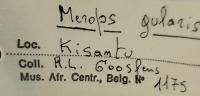 Merops gularis
Loc. Kisantu
Coll. R.L. Goossens
Mus. Afr. Centr., Belg. Nº 1175